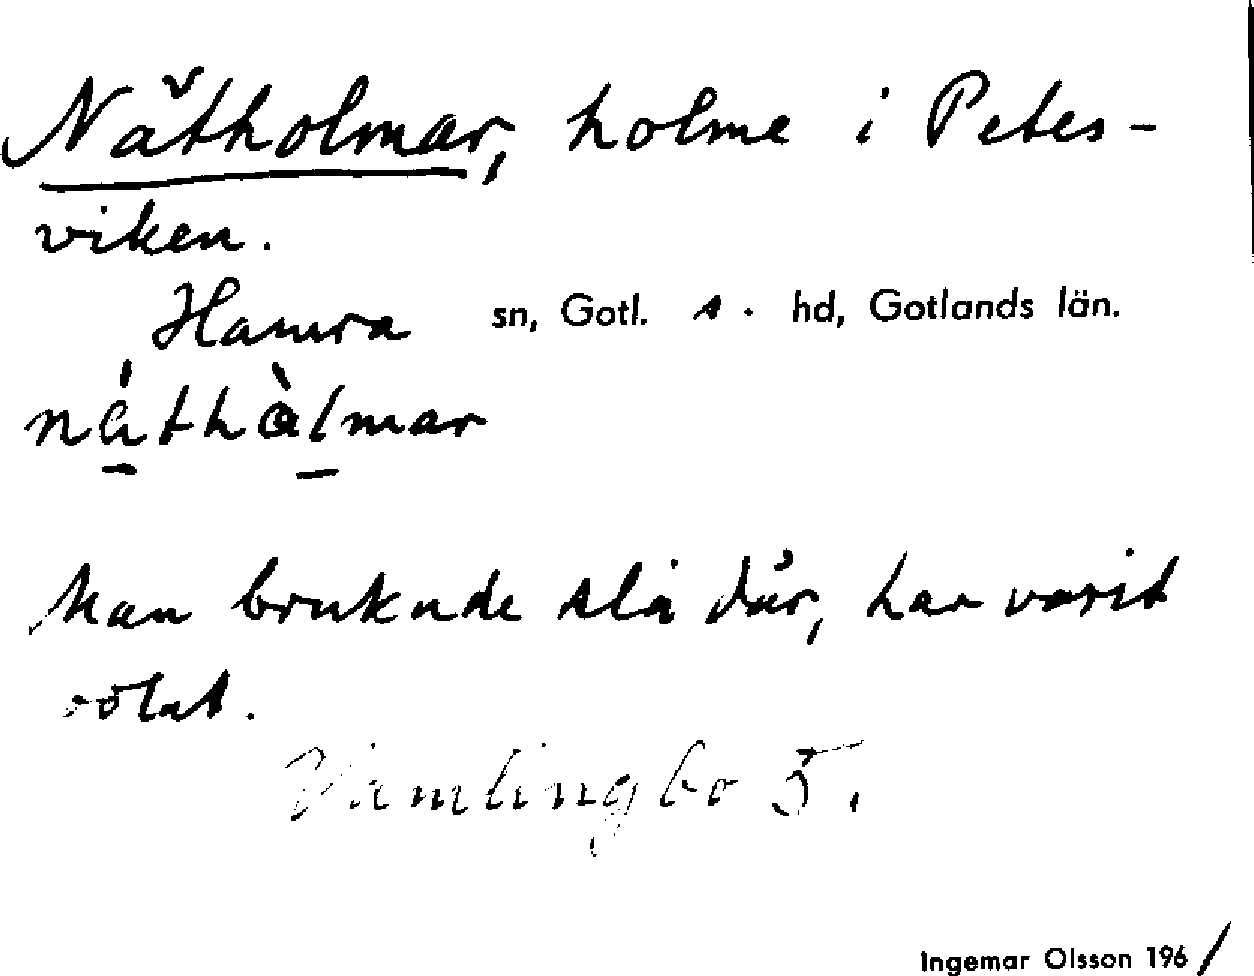 Nätholmar, holme i Petes-
viken.
Hamra sn, Gotl. s. hd, Gotlands län.
nä́thàlmar
Man brukade slå där, har varit
Vamlingbo 5.
Ingemar Olsson 1961